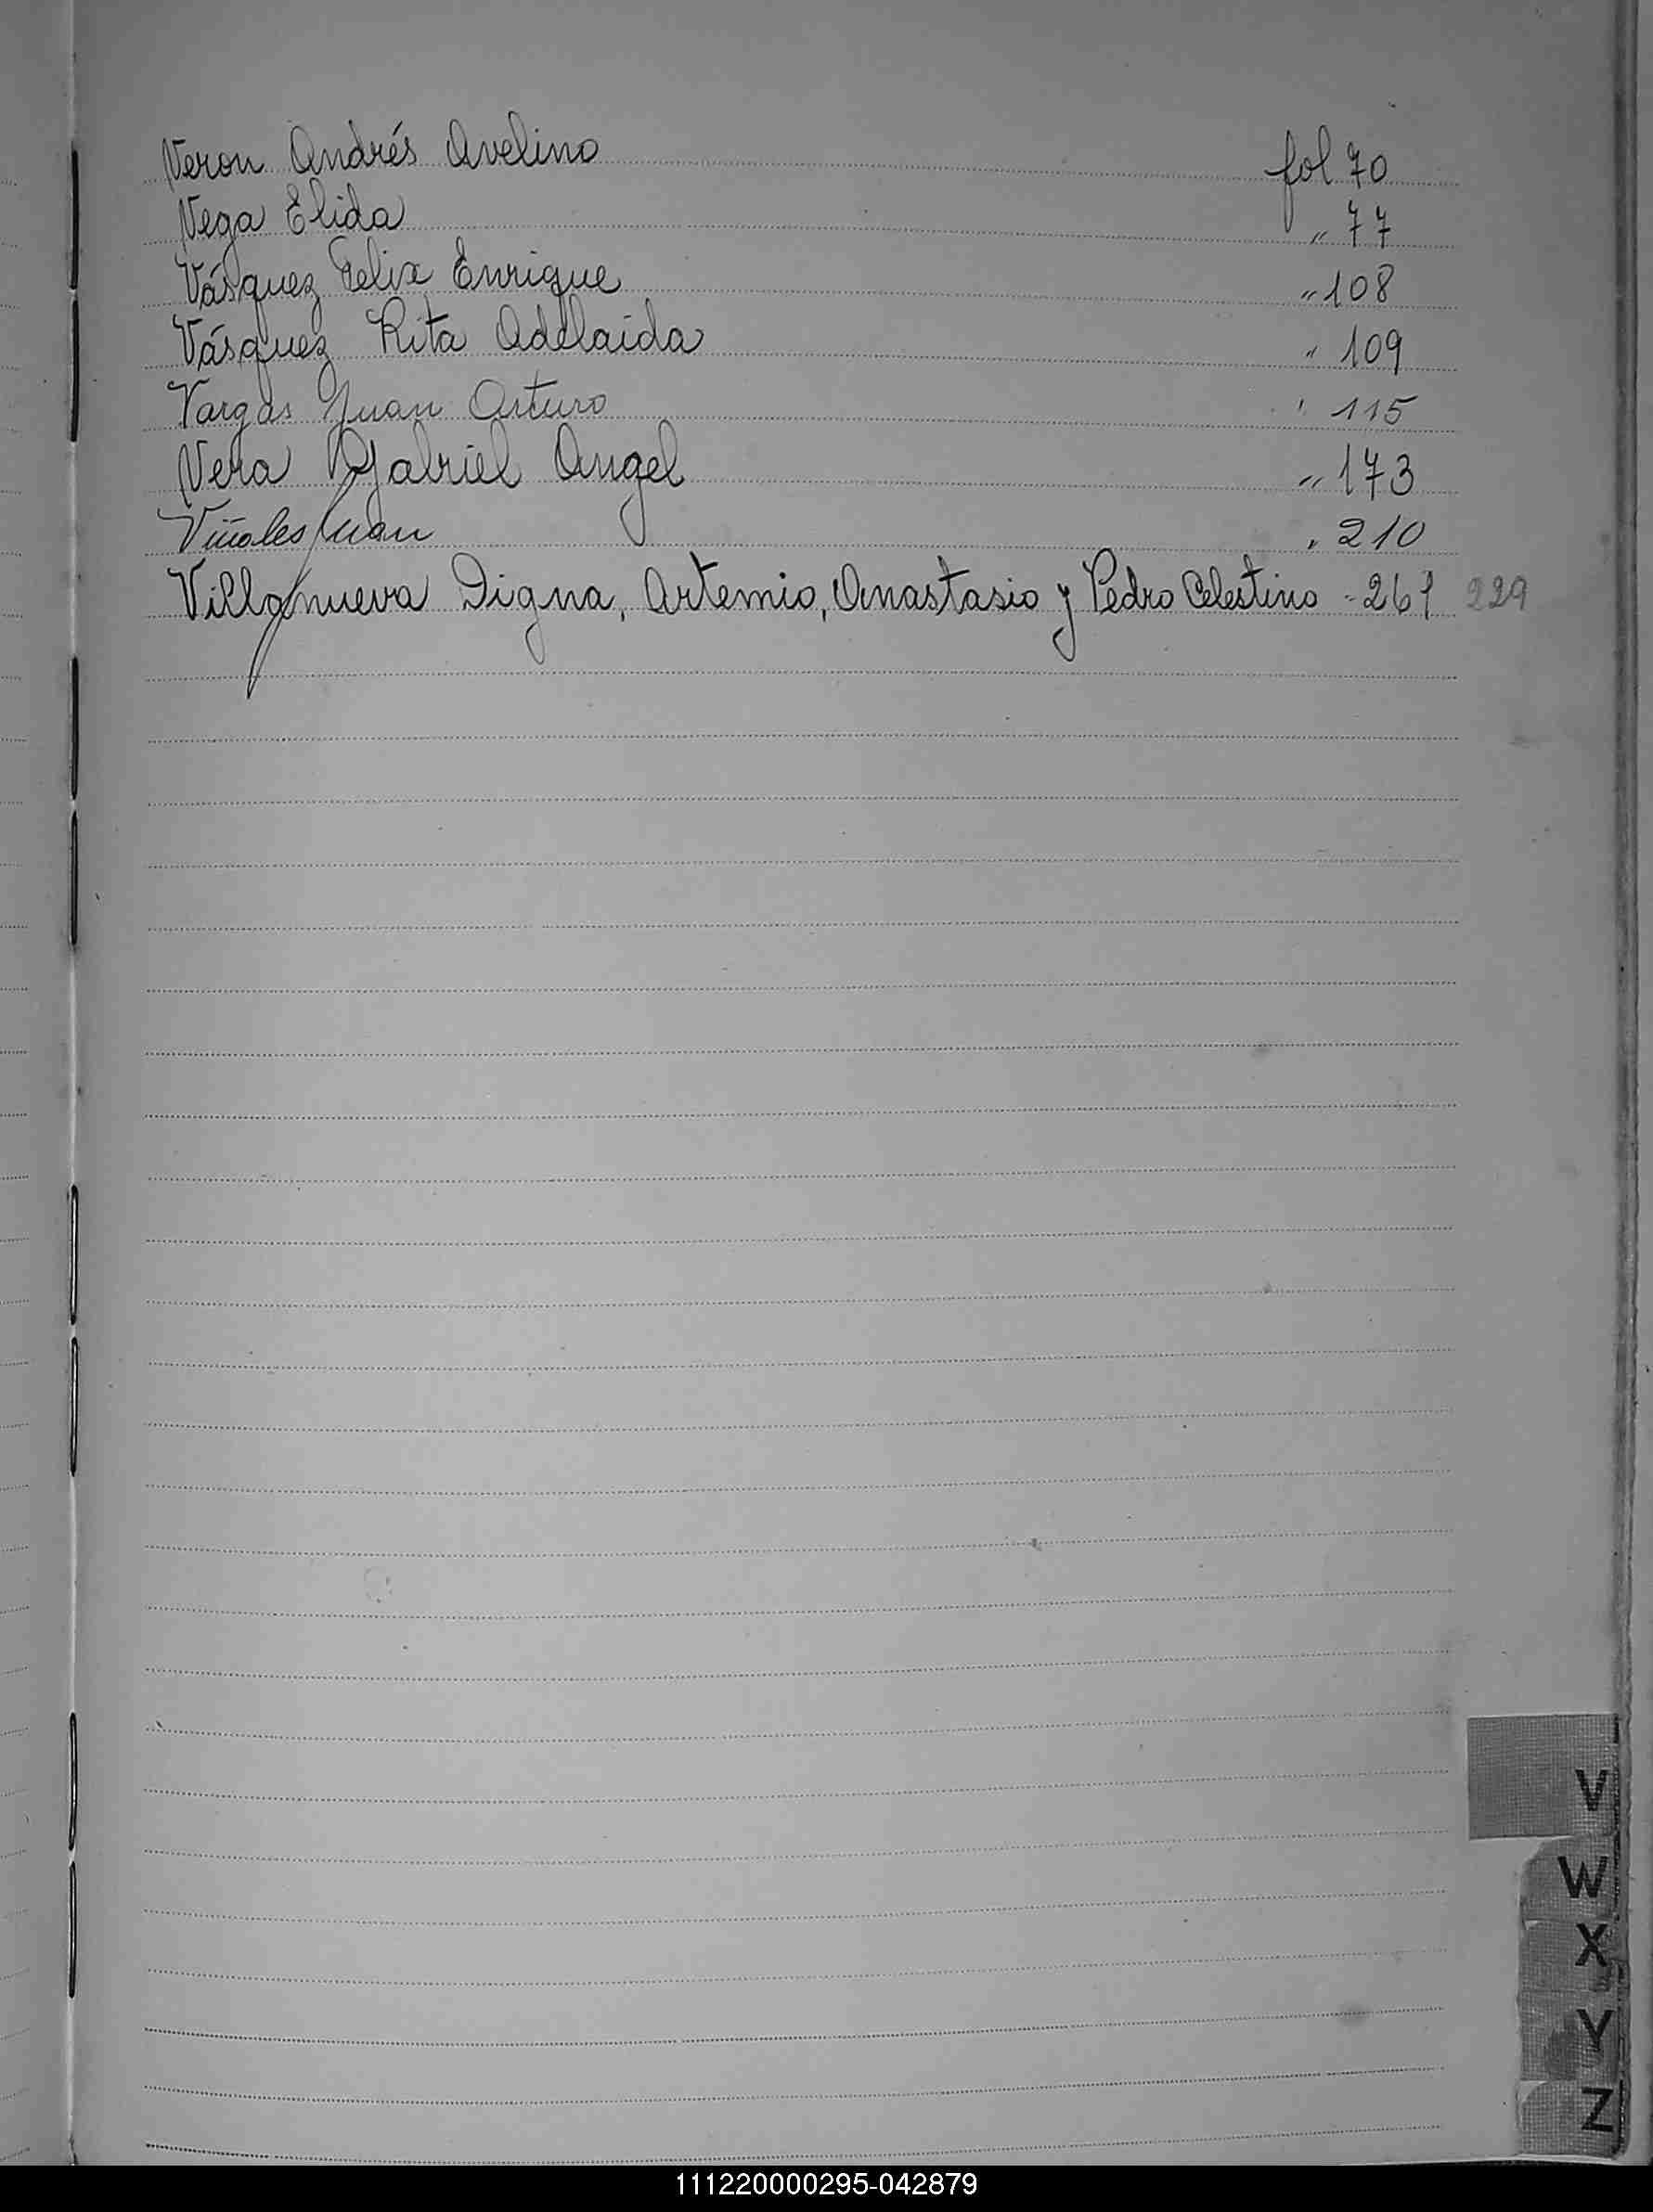 Veron Andrés Avelino fol 70
Vega Elida " 77
Vásquez Felix Enrique " 108
Vásquez Rita Adelaida " 109
Vargas Juan Arturo " 115
Vera Gabriel Angel " 173
Viñales Juan " 210
Villanueva Digna, Artemio, Anastasio y Pedro Celestino - 261 229
V
W
X
Y
Z
111220000295-042879